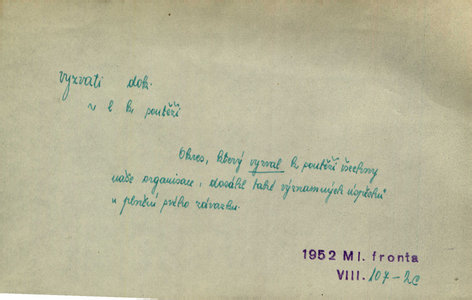 vyzvati dok.
v. b. k. soutěži
Okres, který vyzval k soutěži všechny
naše organisace, dosáhl také významných úspěchů
v plnění svého závazku.
1952 Ml. fronta
VIII. 107-2c